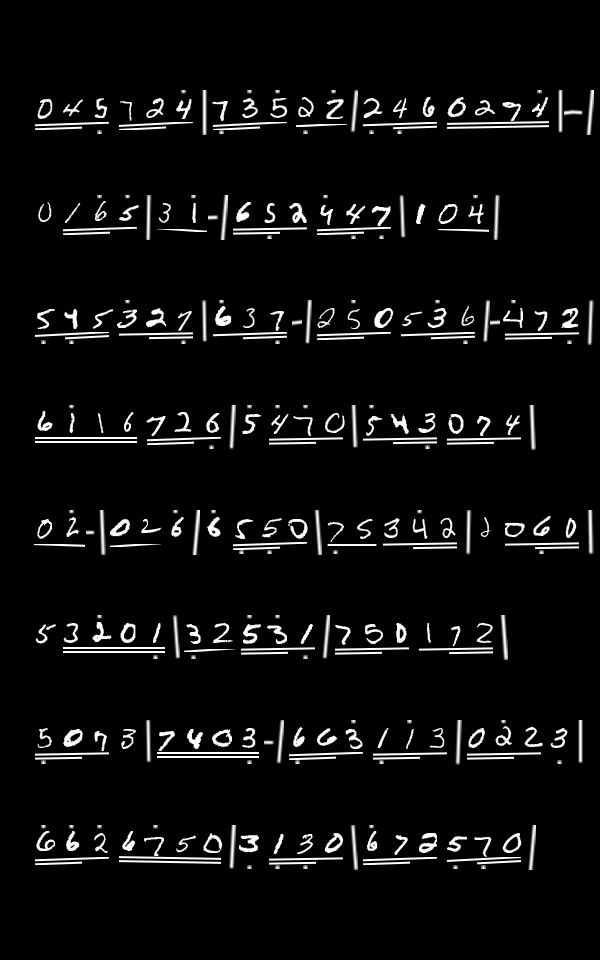 0 4 5 7 2 4 | 7 3 5 2 2 | 2 4 6 0 2 7 4 | - |
0 1 6 5 | 3 1 - | 6 5 2 4 4 7 | 1 0 4 |
5 4 5 3 2 7 | 6 3 7 - | 2 5 0 5 3 6 | - 4 7 2 |
6 1 1 6 7 2 6 | 5 4 7 0 | 5 4 3 0 7 4 |
0 2 - | 0 2 6 | 6 5 5 0 | 7 5 3 4 2 | 2 0 6 0 |
5 3 2 0 1 | 3 2 5 3 1 | 7 5 0 1 7 2 |
5 0 7 3 | 7 4 0 3 - | 6 6 3 1 1 3 | 0 2 2 3 |
6 6 2 6 7 5 0 | 3 1 3 0 | 6 7 2 5 7 0 |